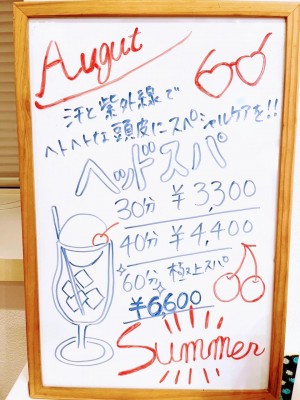 Augut
汗と紫外線で
ヘトヘトな頭皮にスペシャルケアを!!
ヘッドスパ
30分 ¥3,300
40分 ¥4,400
60分 極上スパ
¥6,600
Summer